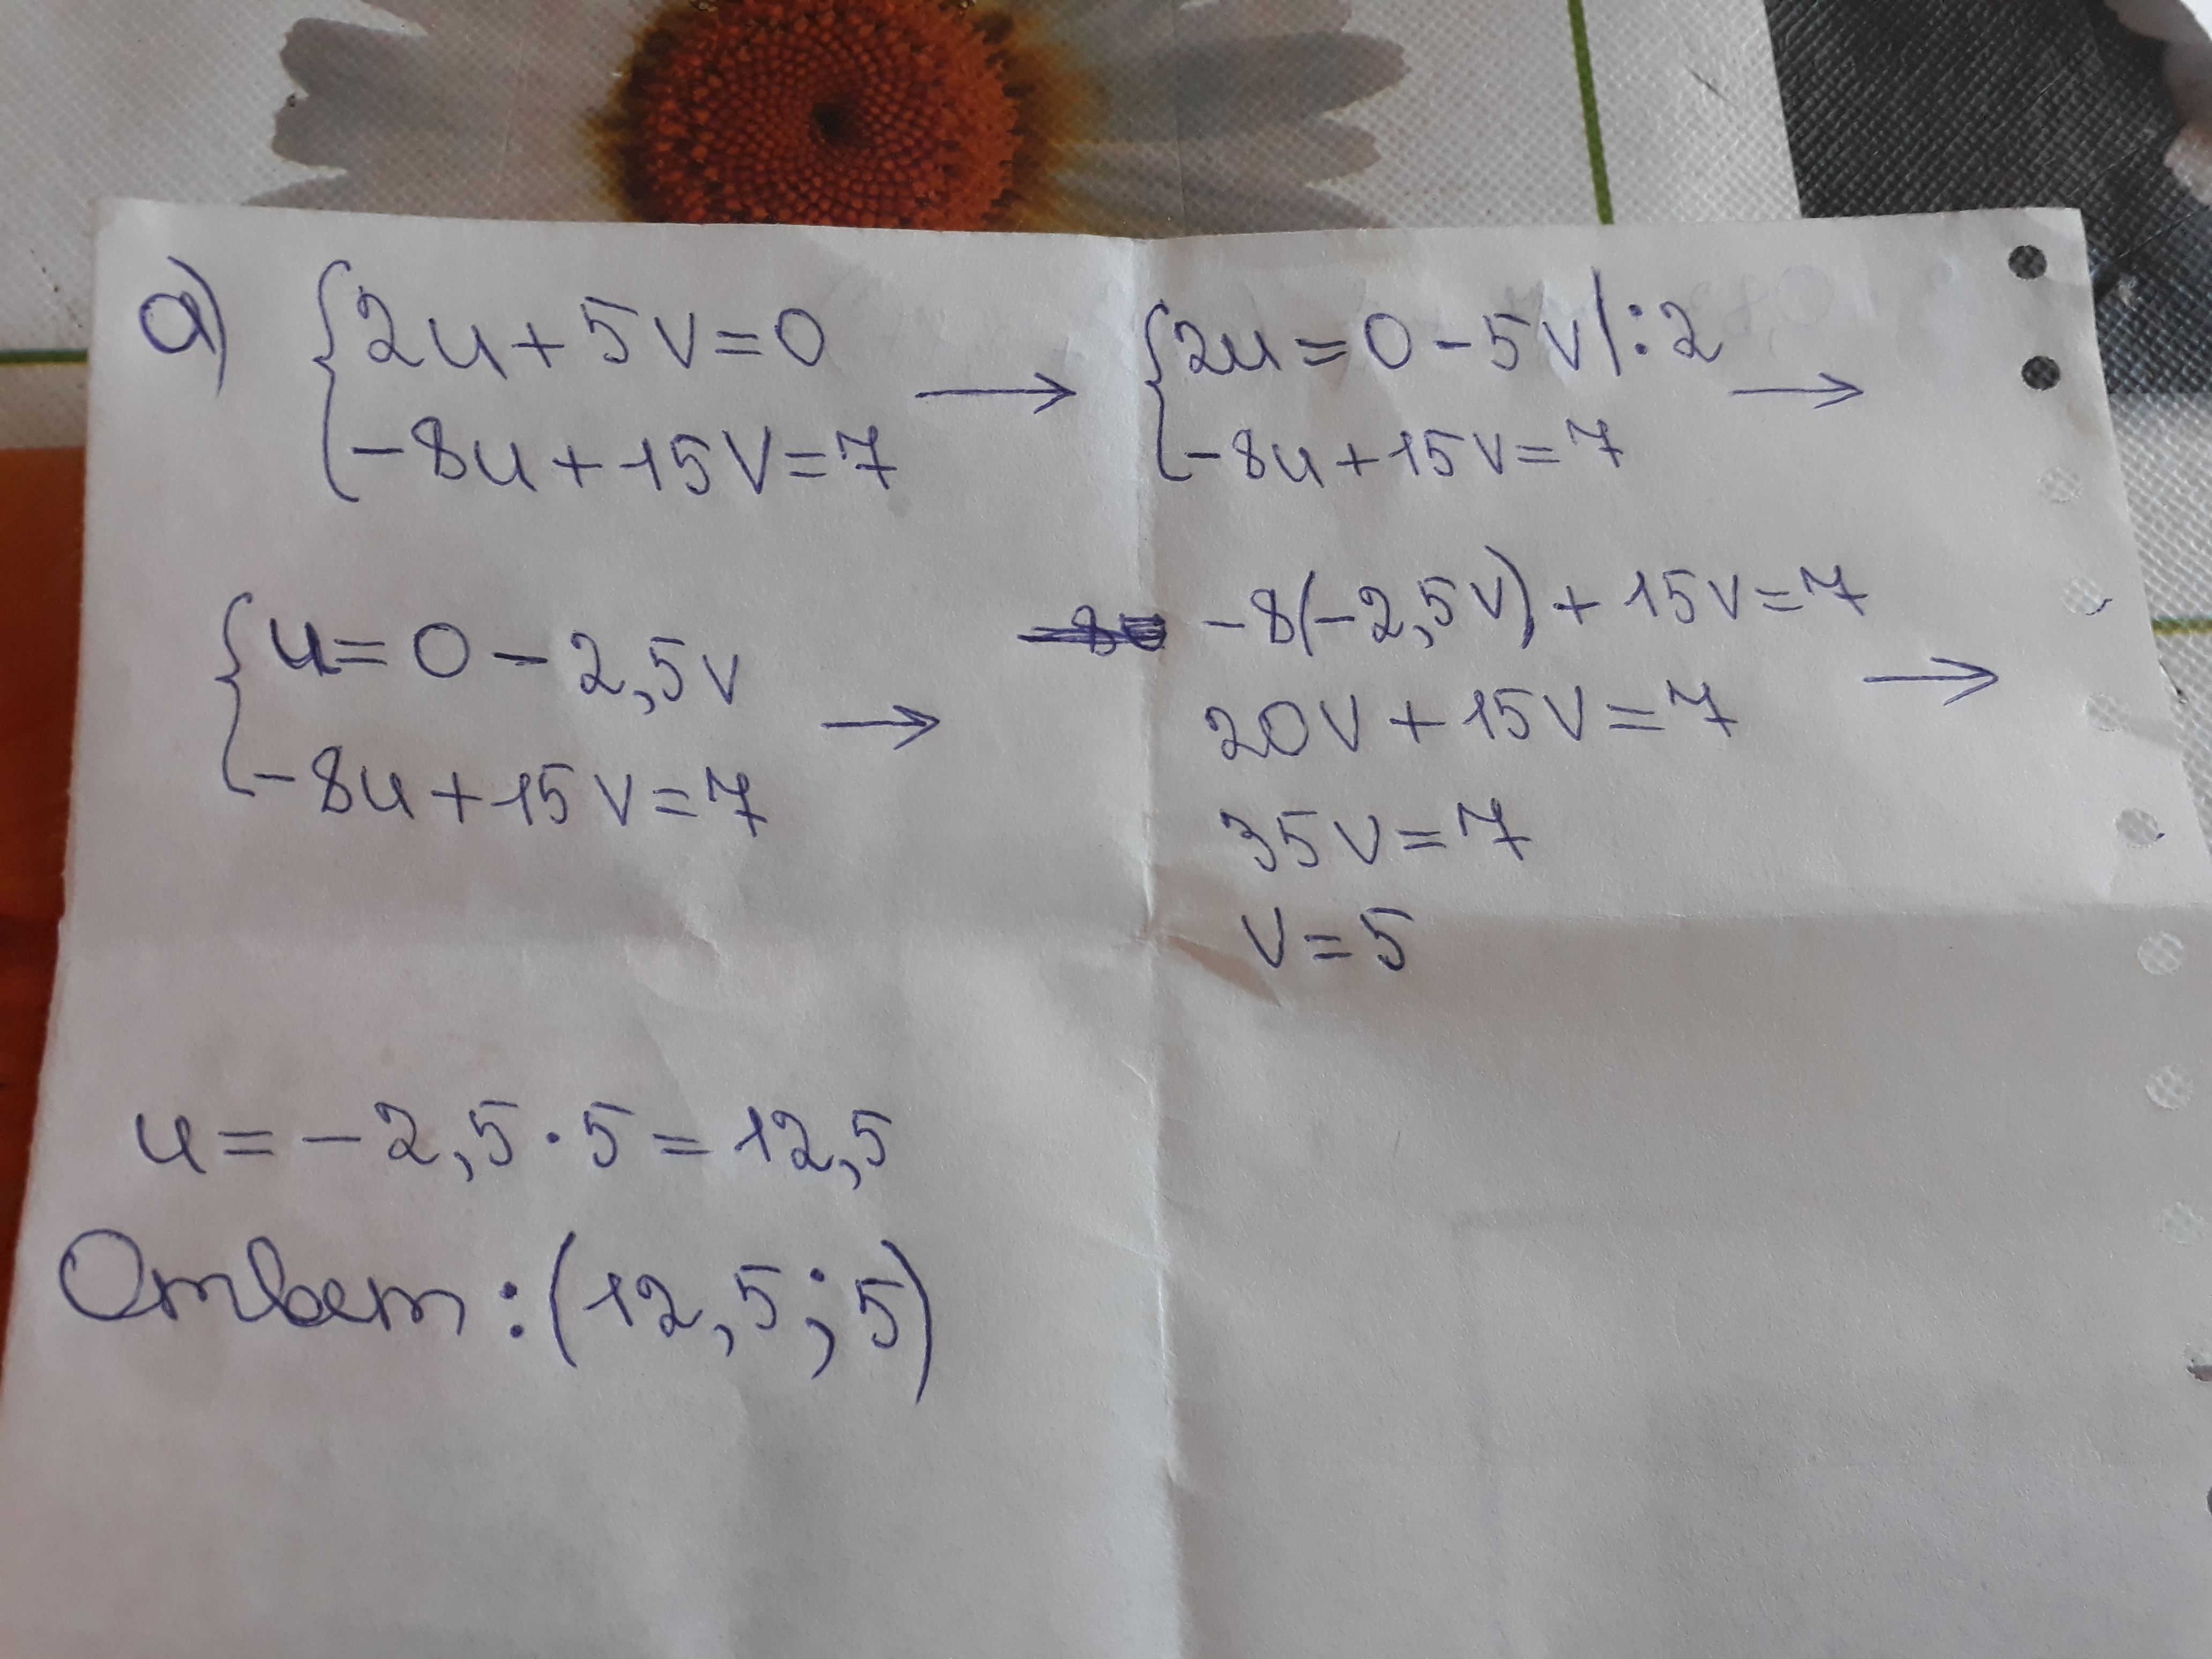 а) {2u+5v=0
{-8u+15v=7
→ {2u=0-5v|:2
{-8u+15v=7 →
{u=0-2,5v
{-8u+15v=7 →
-8(-2,5v)+15v=7
20v+15v=7 →
35v=7
v=5
u=-2,5·5=12,5
Ответ:(12,5;5)